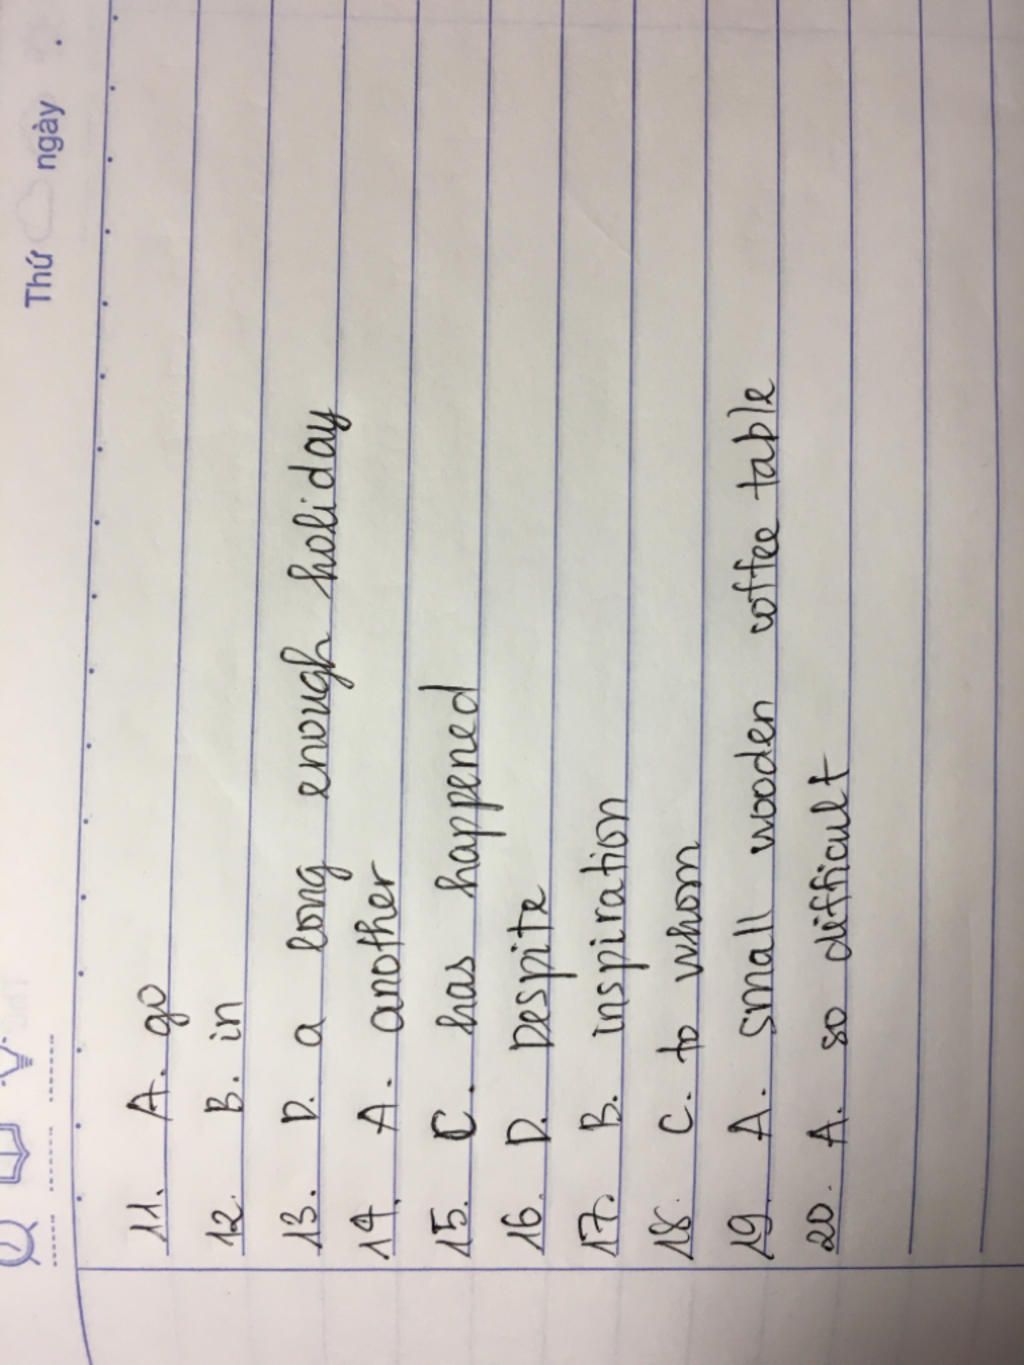 Thứ ngày
11. A. go
12. B. in
13. D. a long enough holiday
14. A. another
15. C. has happened
16. D. Despite
17. B. inspiration
18. C. to whom
19. A. small wooden coffee table
20. A. so difficult